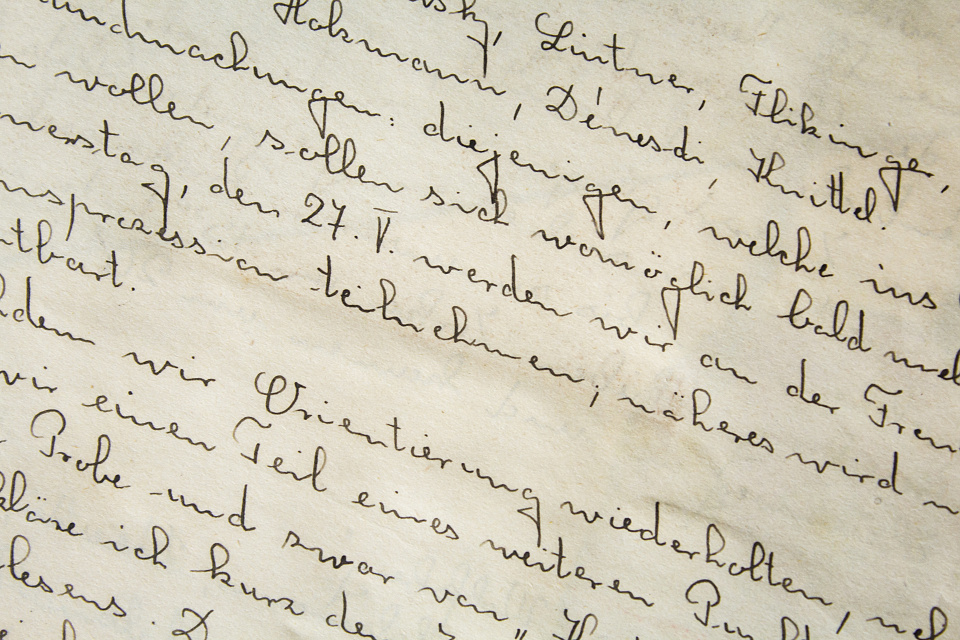 Lintner, Flikinger,
Hokmann, Dénesdi, Knittl.
undmachungen: diejenigen, welche ins
n wollen, sollen sich womöglich bald mel
nerstag, den 27. V. werden wir an der Fron
nsprozession teilnehmen; näheres wird
ntbart.
hdem wir Orientierung wiederholten, neh
wir einen Teil eines weiteren
Probe und zwar von
kläre ich kurz
lesens.